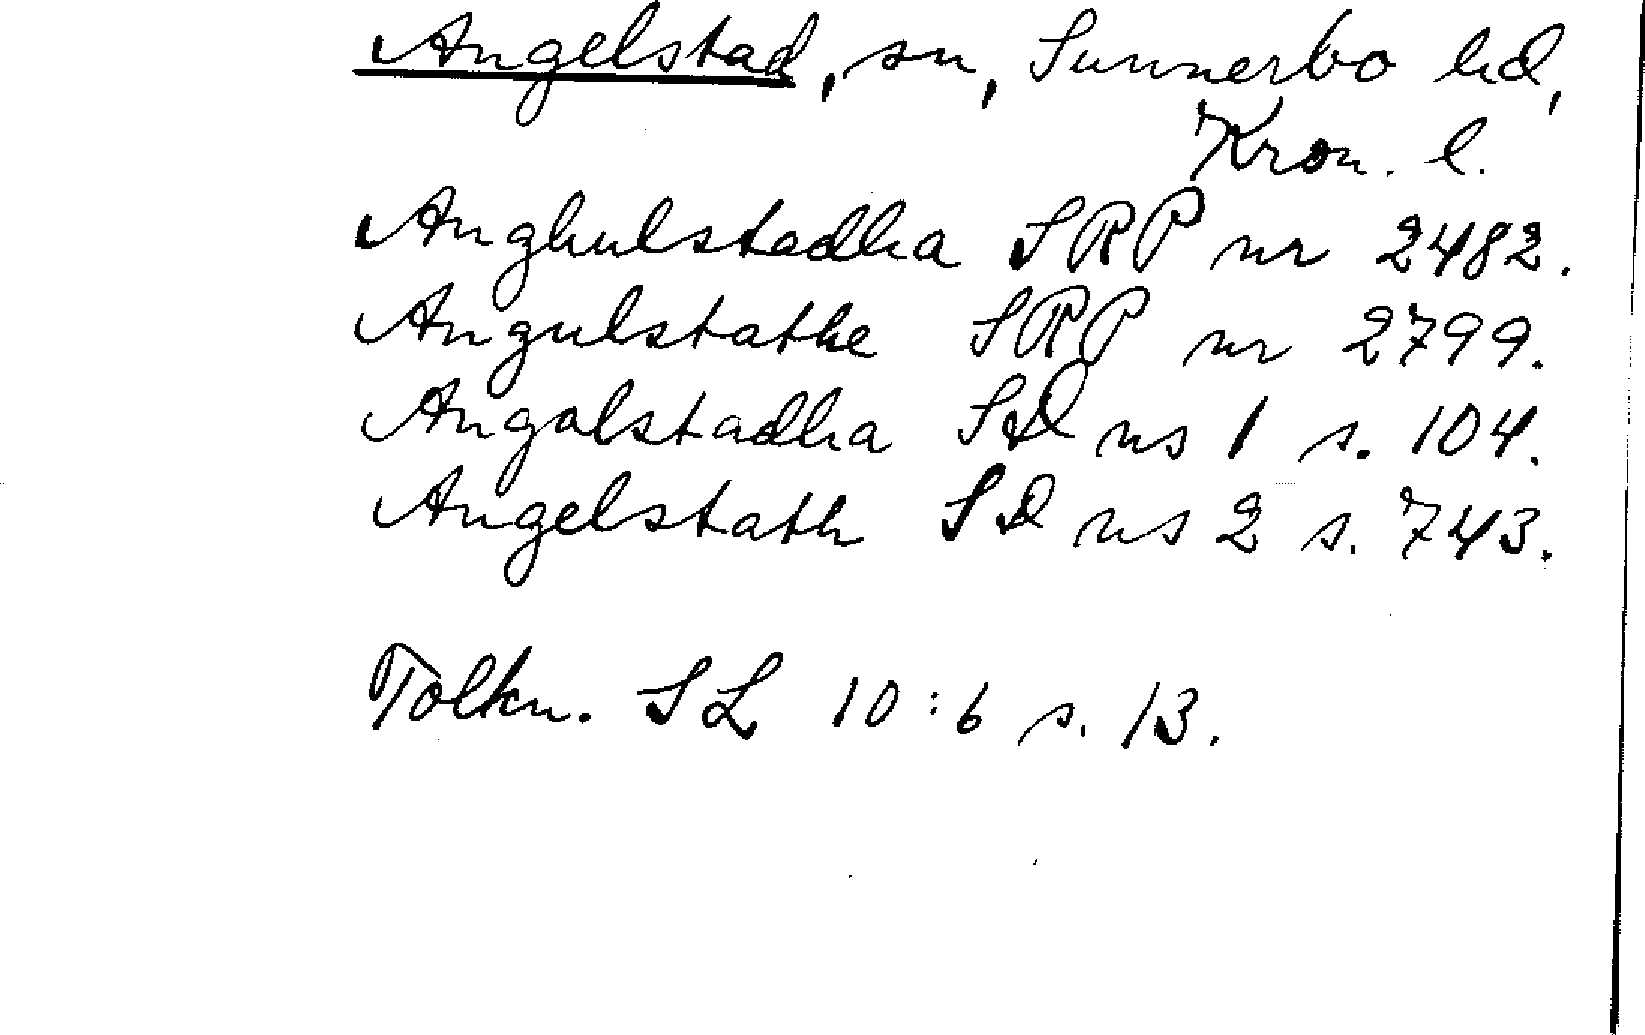 Angelstad, sn, Sunnerbo hd,
Kron. l.
Anghulstadha SRP nr 2482.
Angulstathe SRP nr 2799.
Angolstadha SD ns 1 s. 104.
Angelstath SD ns 2 s. 743.
Tolkn. SL 10:6 s. 13.